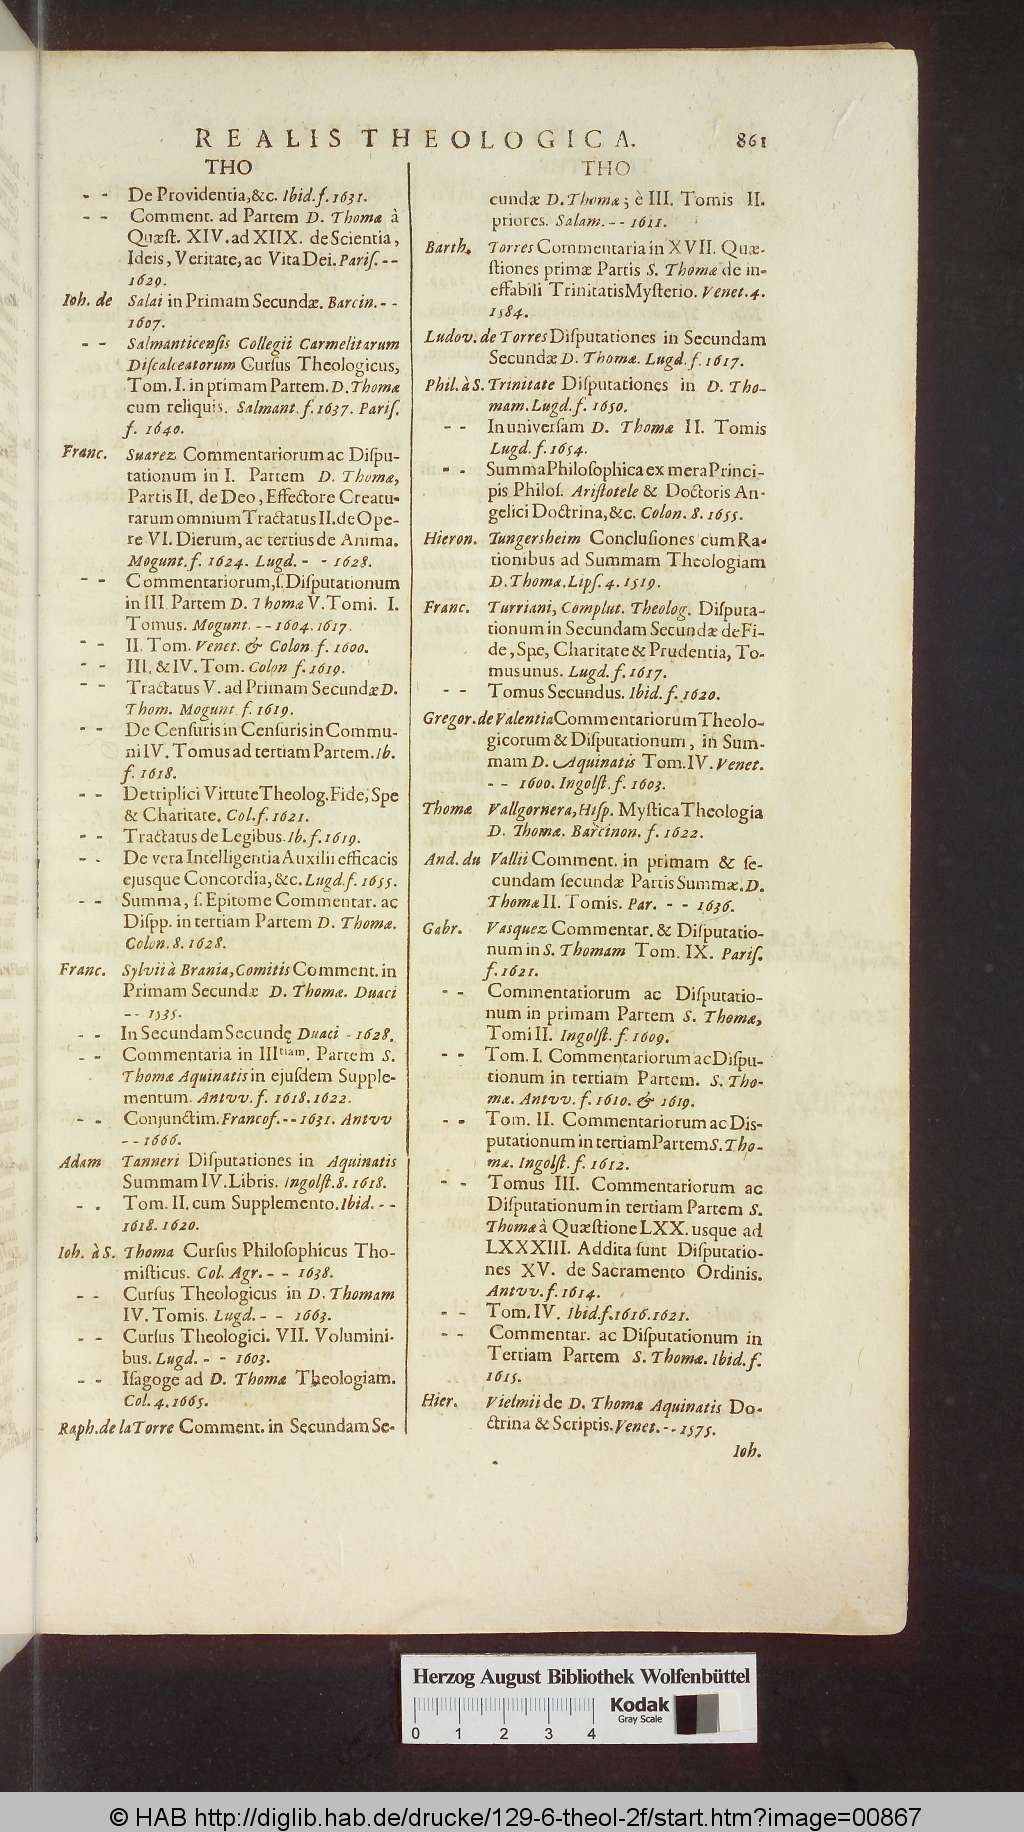 REALIS THEOLOGICA. 861
THO
- - De Providentia, &c. Ibid. f. 1631.
- - Comment. ad Partem D. Thomæ à
Quæst. XIV. ad XIIX. de Scientia,
Ideis, Veritate, ac Vita Dei. Paris. - -
1629.
Ioh. de Salai in Primam Secundæ. Barcin. - -
1607.
- - Salmanticensis Collegii Carmelitarum
Discalceatorum Cursus Theologicus,
Tom. I. in primam Partem. D. Thomæ
cum reliquis. Salmant. f. 1637. Paris.
f. 1640.
Franc. Suarez Commentariorum ac Dispu-
tationum in I. Partem D. Thomæ,
Partis II. de Deo, Effectore Creatu-
rarum omnium Tractatus II. de Ope-
re VI. Dierum, ac tertius de Anima.
Mogunt. f. 1624. Lugd. - - 1628.
- - Commentariorum, s. Disputationum
in III Partem D. Thomæ V. Tomi. I.
Tomus. Mogunt. - - 1604. 1617.
- - II. Tom. Venet. & Colon. f. 1600.
- - III. & IV. Tom. Colon f. 1619.
- - Tractatus V. ad Primam Secundæ D.
Thom. Mogunt f. 1619.
- - De Censuris in Censuris in Commu-
ni IV. Tomus ad tertiam Partem. Ib.
f. 1618.
- - De triplici Virtute Theolog. Fide, Spe
& Charitate. Col. f. 1621.
- - Tractatus de Legibus. Ib. f. 1619.
- - De vera Intelligentia Auxilii efficacis
ejusque Concordia, &c. Lugd. f. 1655.
- - Summa, s. Epitome Commentar. ac
Dispp. in tertiam Partem D. Thomæ.
Colon. 8. 1628.
Franc. Sylvii à Brania, Comitis Comment. in
Primam Secundæ D. Thomæ. Duaci
- - 1535.
- - In Secundam Secundę Duaci - 1628.
- - Commentaria in IIItiam. Partem S.
Thomæ Aquinatis in ejusdem Supple-
mentum. Antvv. f. 1618. 1622.
- - Conjunctim. Francof. - - 1631. Antvv
- - 1666.
Adam Tanneri Disputationes in Aquinatis
Summam IV. Libris. Ingolst. 8. 1618.
- - Tom. II. cum Supplemento. Ibid. - -
1618. 1620.
Ioh. à S. Thoma Cursus Philosophicus Tho-
misticus. Col. Agr. - - 1638.
- - Cursus Theologicus in D. Thomam
IV. Tomis. Lugd. - - 1663.
- - Cursus Theologici. VII. Volumini-
bus. Lugd. - - 1603.
- - Isagoge ad D. Thomæ Theologiam.
Col. 4. 1665.
Raph. de la Torre Comment. in Secundam Se-
THO
cundæ D. Thomæ; è III. Tomis II.
priores. Salam. - - 1611.
Barth. Torres Commentaria in XVII. Quæ-
stiones primæ Partis S. Thomæ de in-
effabili Trinitatis Mysterio. Venet. 4.
1584.
Ludov. de Torres Disputationes in Secundam
Secundæ D. Thomæ. Lugd. f. 1617.
Phil. à S. Trinitate Disputationes in D. Tho-
mam. Lugd. f. 1650.
- - In universam D. Thomæ II. Tomis
Lugd. f. 1654.
- - Summa Philosophica ex mera Princi-
pis Philos. Aristotele & Doctoris An-
gelici Doctrina, &c. Colon. 8. 1655.
Hieron. Tungersheim Conclusiones cum Ra-
tionibus ad Summam Theologiam
D. Thomæ. Lips. 4. 1519.
Franc. Turriani, Complut. Theolog. Disputa-
tionum in Secundam Secundæ de Fi-
de, Spe, Charitate & Prudentia, To-
mus unus. Lugd. f. 1617.
- - Tomus Secundus. Ibid. f. 1620.
Gregor. de Valentia Commentariorum Theolo-
gicorum & Disputationum, in Sum-
mam D. Aquinatis Tom. IV. Venet.
- - 1600. Ingolst. f. 1603.
Thomæ Vallgornera, Hisp. Mystica Theologia
D. Thomæ. Barcinon. f. 1622.
And. du Vallii Comment. in primam & se-
cundam secundæ Partis Summæ. D.
Thomæ II. Tomis. Par. - - 1636.
Gabr. Vasquez Commentar. & Disputatio-
num in S. Thomam Tom. IX. Paris.
f. 1621.
- - Commentatiorum ac Disputatio-
num in primam Partem S. Thomæ,
Tomi II. Ingolst. f. 1609.
- - Tom. I. Commentariorum ac Dispu-
tionum in tertiam Partem. S. Tho-
mæ. Antvv. f. 1610. & 1619.
- - Tom. II. Commentariorum ac Dis-
putationum in tertiam Partem S. Tho-
mæ. Ingolst. f. 1612.
- - Tomus III. Commentariorum ac
Disputationum in tertiam Partem S.
Thomæ à Quæstione LXX. usque ad
LXXXIII. Addita sunt Disputatio-
nes XV. de Sacramento Ordinis.
Antvv. f. 1614.
- - Tom. IV. Ibid. f. 1616. 1621.
- - Commentar. ac Disputationum in
Tertiam Partem S. Thomæ. Ibid. f.
1615.
Hier. Vielmii de D. Thomæ Aquinatis Do-
ctrina & Scriptis. Venet. - - 1575.
Ioh.
Herzog August Bibliothek Wolfenbüttel
Kodak
Gray Scale
0 1 2 3 4
© HAB http://diglib.hab.de/drucke/129-6-theol-2f/start.htm?image=00867